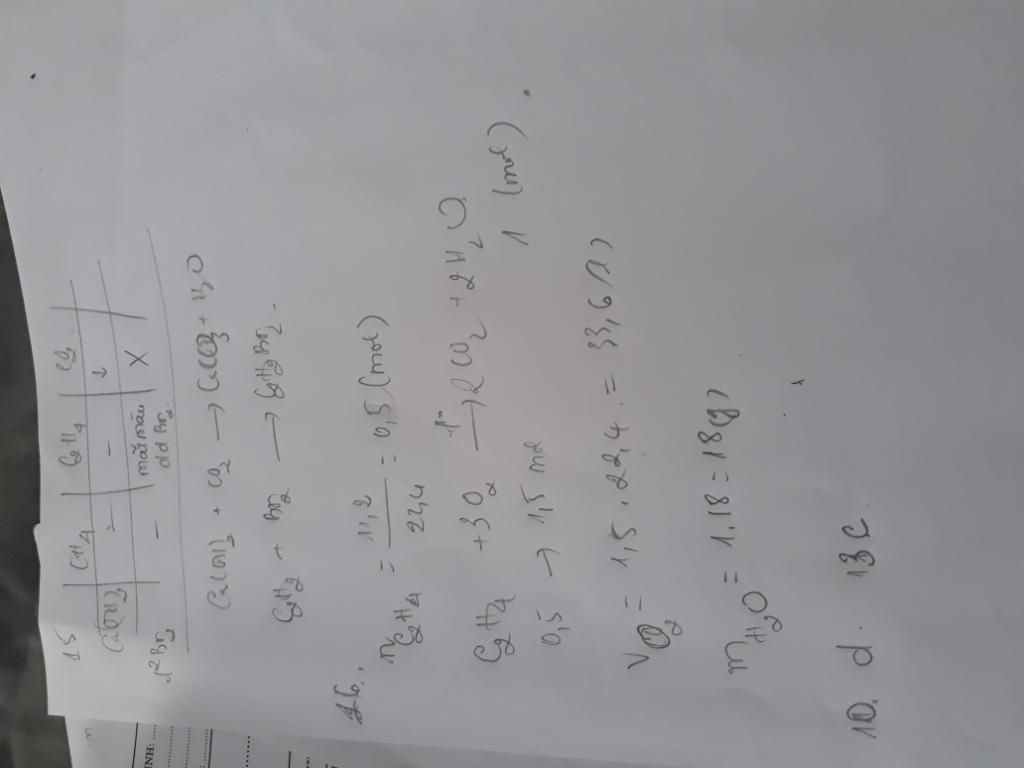 15
CH4 C2H4 CO2
Ca(OH)2 - - ↓
d2Br2 - mất màu dd Br2 X
Ca(OH)2 + CO2 → CaCO3 + H2O
C2H2 + Br2 → C2H2Br2.
16.
nC2H4 = 11,2/22,4 = 0,5 (mol)
C2H4 + 3O2 –t°→ 2CO2 + 2H2O
0,5 → 1,5 mol 1 (mol)
VO2 = 1,5 . 22,4 = 33,6 (l)
mH2O = 1.18 = 18(g)
10. d. 13 c.
INH: